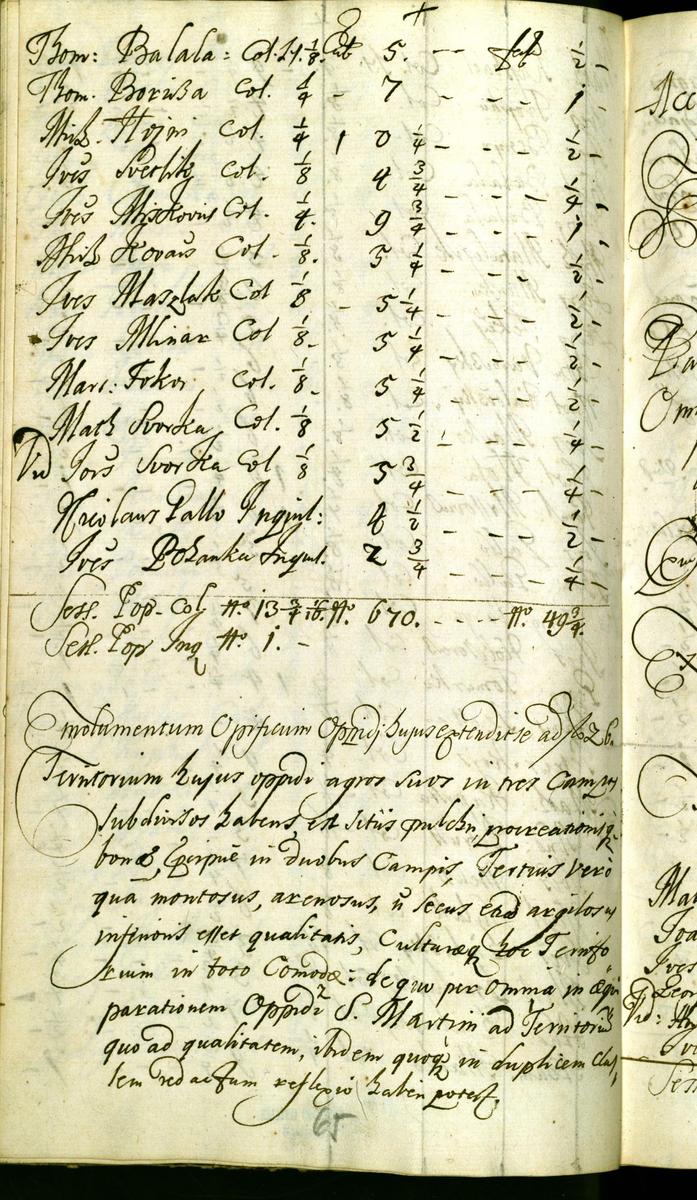 Thom: Balala: Col. 1/8. Cub. 5. -- 1/2 -
Thom. Borissa Col. 1/4 - 7 - - - 1
Mih. Hojni Col. 1/4 1 0 1/4 - - - 1/2 -
Ives Svetlik Col. 1/8 4 3/4 - - - 1/4
Ives Miskovis Col. 1/4. 9 3/4 - - - 1
Mih Kovais Col. 1/8. 5 1/4 - - - 1/2
Ives Maszlak Col 1/8 - 5 1/4 - - - 1/2
Ives Mlinar Col 1/8 - 5 1/4 - - - 1/2
Mart: Fokor Col. 1/8 - 5 1/4 - - - 1/2 -
Math Svorka Col. 1/8 5 1/2 - - - 1/4
Vid Jors Svorka Col 1/8 5 3/4 - - - 1/4 -
Nicolaus Pallo Inquil: 4 1/2 - - - 1/2 -
Ives Pozanka Inquil. 2 3/4 - - - 1/4 -
Sess. Pop. Col No 13 3/4 1/16. No. 670. - - - - No. 49 3/4.
Sess. Pop Inq No. 1. -
Emolumentum Opificum Oppidi hujus extendit se ad f 26.
Territorium hujus oppidi agros suos in tres Campos
subdivisos habens, est sitûs pulchri, procreationisq
bonæ, præcipuè in duobus Campis, Tertius verò
qua montosus, arenosus, secus argilosus
inferioris esset qualitatis, Culturæq hoc Territo
rium in toto Comodæ: de quo per omnia in æqui
parationem Oppidi S. Martini ad Territoriũ
quo ad qualitatem, ibidem quoq in duplicem Clas,
sem redactum reflexio haberi potest.
65